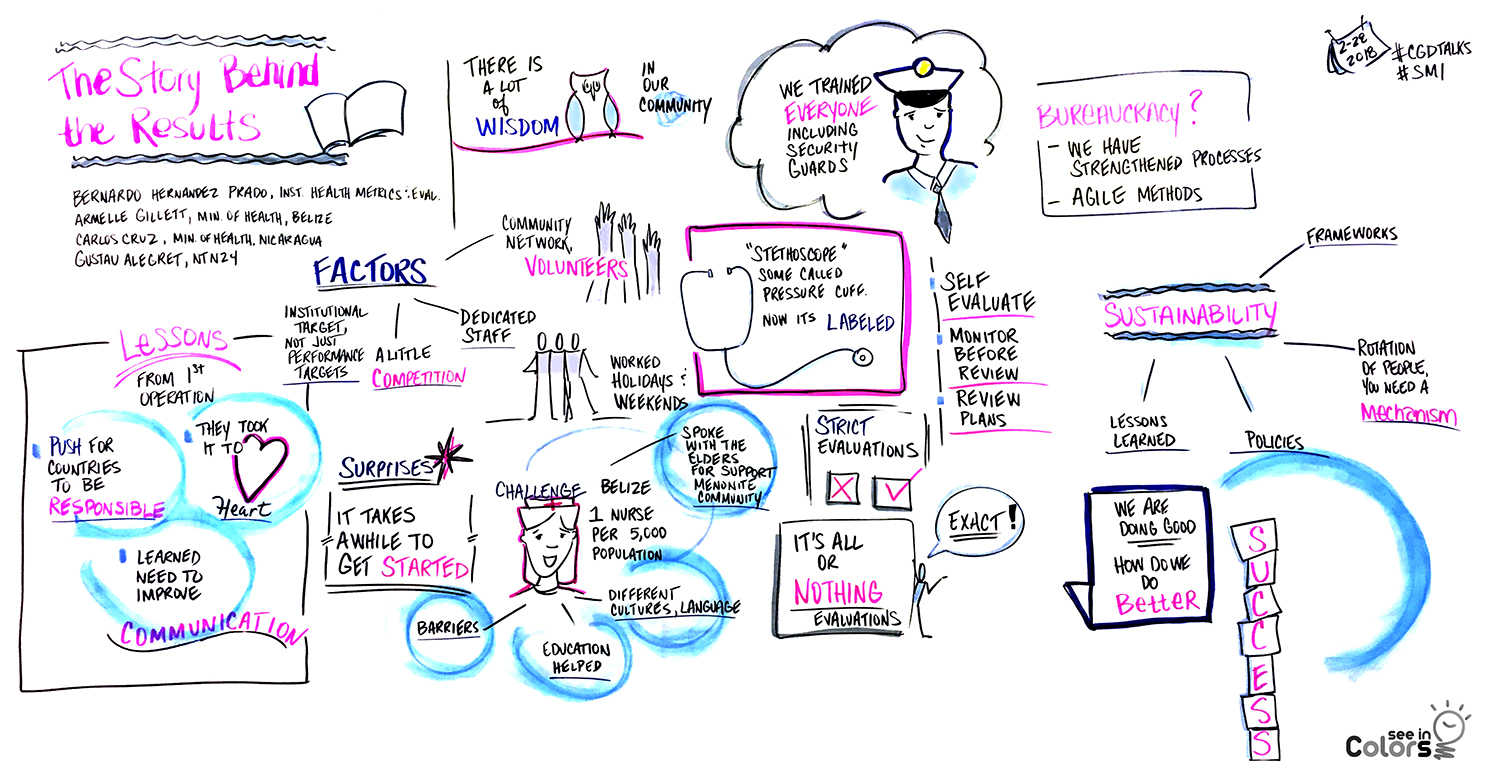 The Story Behind
the Results
BERNARDO HERNANDEZ PRADO, INST. HEALTH METRICS : EVAL.
ARMELLE GILLETT, MIN. OF HEALTH, BELIZE
CARLOS CRUZ, MIN. OF HEALTH, NICARAGUA
GUSTAU ALEGRET, NTN24
THERE IS
A LOT
of
WISDOM
IN
OUR
COMMUNITY
WE TRAINED
EVERYONE
INCLUDING
SECURITY
GUARDS
BUREAUCRACY?
- WE HAVE
STRENGTHENED PROCESSES
- AGILE METHODS
2-28
2018
#CGDTALKS
#SMI
FACTORS
COMMUNITY
NETWORK,
VOLUNTEERS
DEDICATED
STAFF
WORKED
HOLIDAYS :
WEEKENDS
A LITTLE
COMPETITION
INSTITUTIONAL
TARGET,
NOT JUST
PERFORMANCE
TARGETS
LESSONS
FROM 1ST
OPERATION
PUSH FOR
COUNTRIES
TO BE
RESPONSIBLE
THEY TOOK
IT TO
Heart
LEARNED
NEED TO
IMPROVE
COMMUNICATION
SURPRISES
IT TAKES
AWHILE TO
GET STARTED
"STETHOSCOPE"
SOME CALLED
PRESSURE CUFF.
NOW ITS LABELED
SELF
EVALUATE
MONITOR
BEFORE
REVIEW
REVIEW
PLANS
CHALLENGE
BELIZE
1 NURSE
PER 5,000
POPULATION
SPOKE
WITH THE
ELDERS
FOR SUPPORT
MENONITE
COMMUNITY
DIFFERENT
CULTURES, LANGUAGE
BARRIERS
EDUCATION
HELPED
STRICT
EVALUATIONS
IT'S ALL
OR
NOTHING
EVALUATIONS
EXACT!
FRAMEWORKS
SUSTAINABILITY
ROTATION
OF PEOPLE,
YOU NEED A
Mechanism
LESSONS
LEARNED
POLICIES
WE ARE
DOING GOOD
HOW DO WE
DO
Better
SUCCESS
see in
Colors